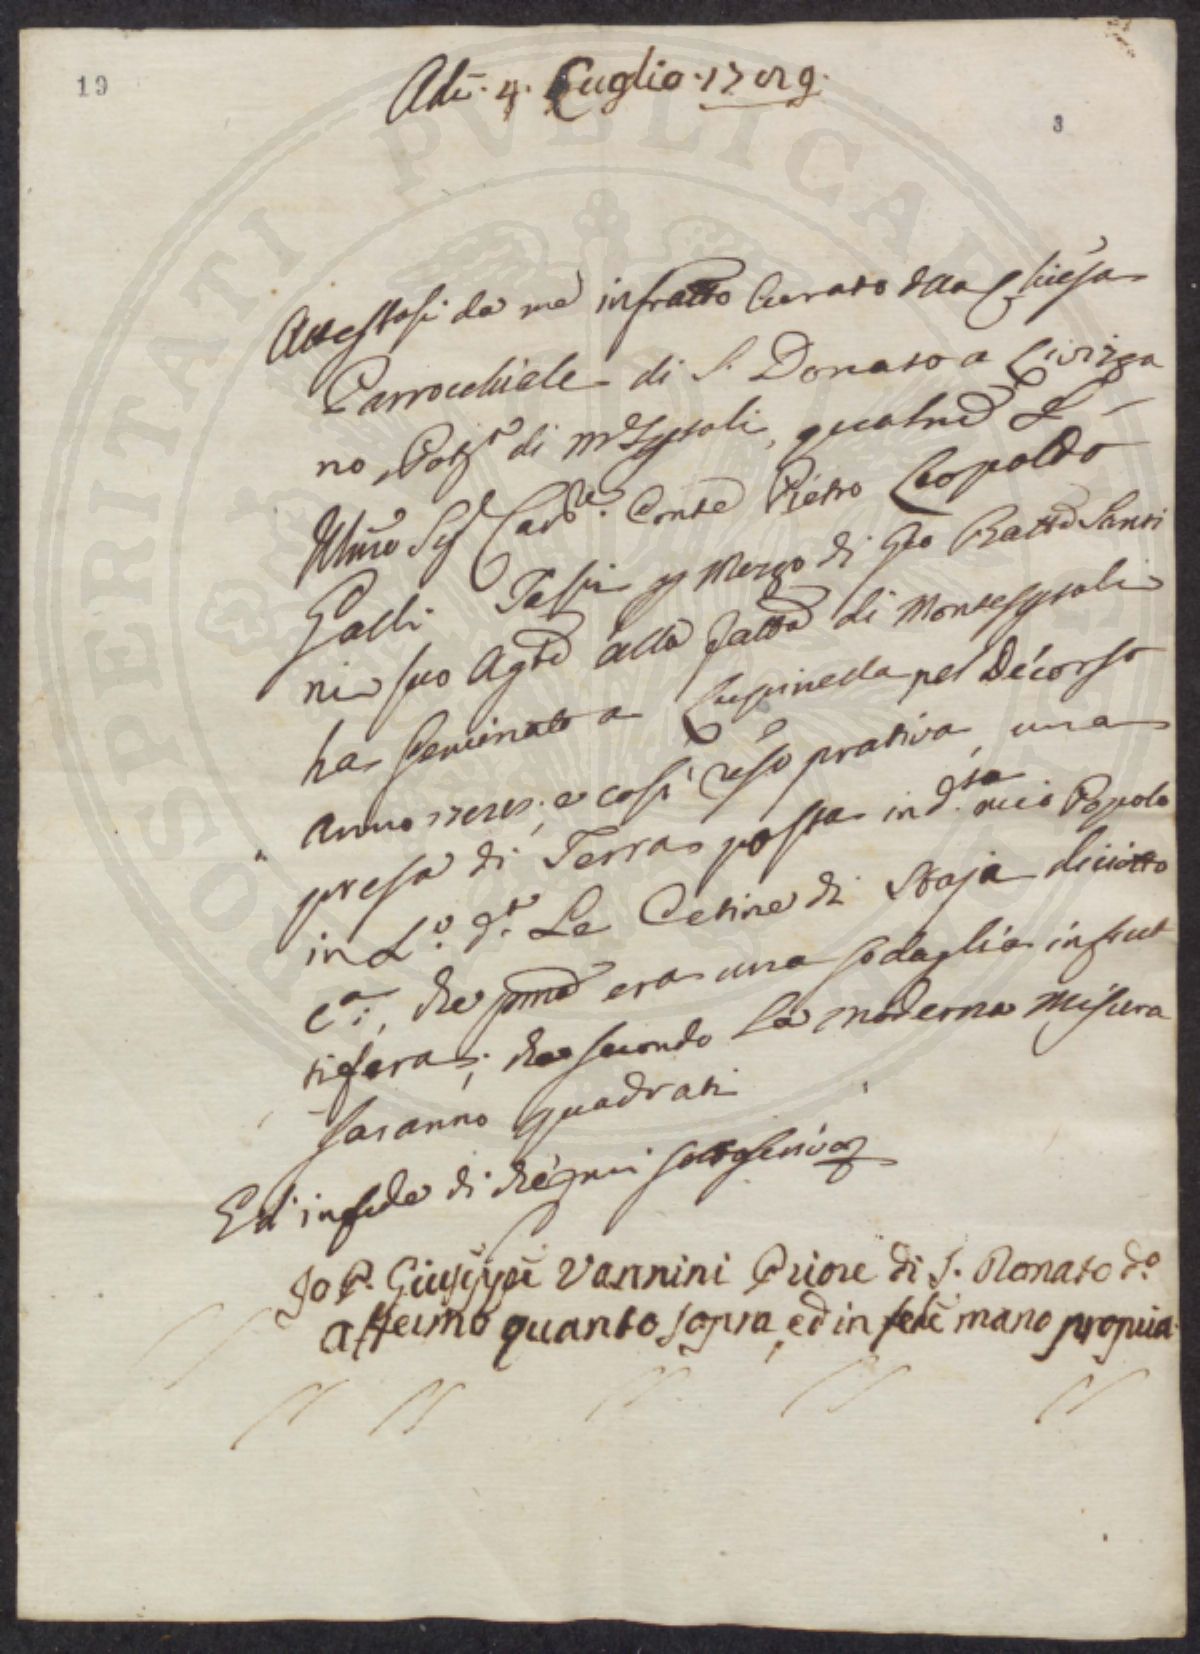 19
Adì. 4. Luglio. 17
3
Attestasi da me infratto Curato dlla Chiesa
Parrochiale di S. Donato a Livizza
no, Potria di Mte Spertoli, qualmte L'
Illmo Sig Cavre. Conte Pietro Leopoldo
Galli Tassi p mezzo di Gio Batta Santi
ni suo Agte alla Fattoa di Montespertoli
ha seminato a Lupinella pel decorso
Anno e così reso prativa, una
presa di Terra posta in dta mia Popolo
in L.o d.o Le Cetine di Staja diciotto
c.a, che pma era una sodaglia infrut
tifera; che secondo la moderna Misura
saranno quadrati
Ed in fede di che qui sottoscrivo
Io P. Giuseppe Vannini Priore di S. Donato do
affermo quanto sopra, ed in fede mano propria
PROSPERITATI PVBLICAE